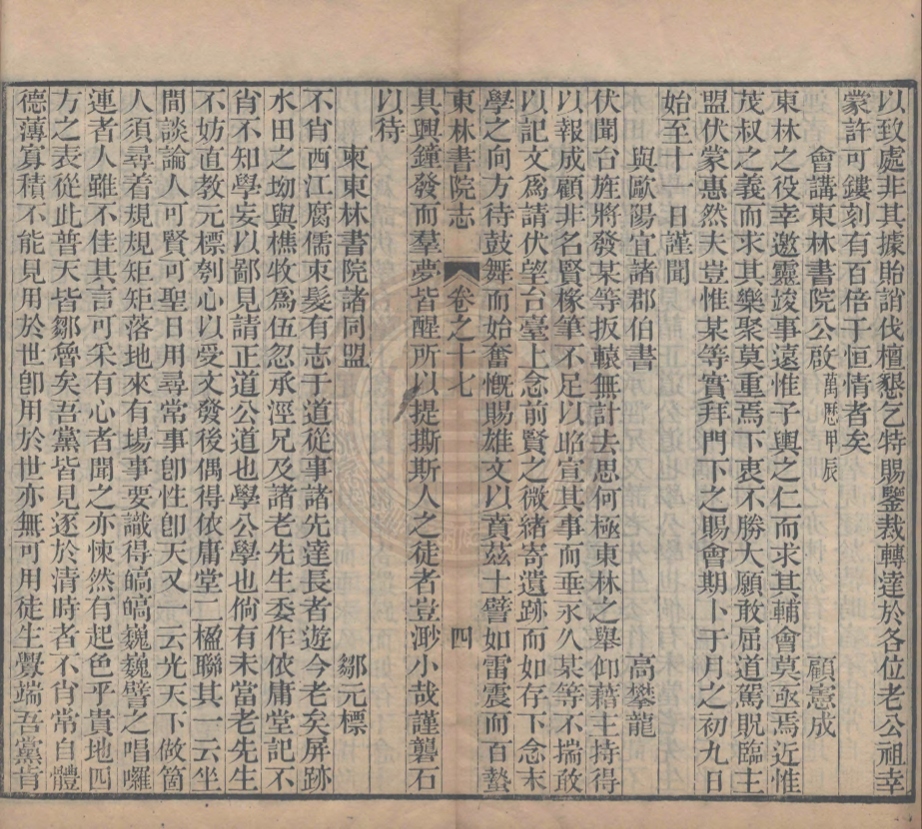 以致處非其據貽誚伐檀懇乞特賜鑒裁轉達於各位老公祖幸
蒙許可鏤刻有百倍于恒情者矣
會講東林書院公啟 萬曆甲辰 顧憲成
東林之役幸邀靈竣事遠惟子輿之仁而求其輔會莫亟焉近惟
茂叔之義而求其樂聚莫重焉下衷不勝大願敢屈道駕貺臨主
盟伏蒙惠然夫豈惟某等實拜門下之賜會期卜于月之初九日
始至十一日謹聞
與歐陽宜諸郡伯書 高攀龍
伏聞台旌將發某等扳轅無計去思何極東林之舉仰藉主持得
以報成顧非名賢椽筆不足以昭宣其事而垂永久某等不揣敢
以記文爲請伏望台臺上念前賢之微緒寄遺跡而如存下念末
學之向方待鼓舞而始奮慨賜雄文以賁茲土譬如雷震而百蟄
東林書院志 卷之十七 四
具興鐘發而羣夢皆醒所以提撕斯人之徒者豈渺小哉謹礱石
以待
柬東林書院諸同盟 鄒元標
不肖西江腐儒束髮有志于道從事諸先達長者遊今老矣屏跡
水田之坳與樵牧爲伍忽承涇兄及諸老先生委作依庸堂記不
肖不知學妄以鄙見請正道公道也學公學也倘有未當老先生
不妨直教元標刳心以受文發後偶得依庸堂二楹聯其一云坐
間談論人可賢可聖日用尋常事卽性卽天又一云光天下做箇
人須尋着規規矩矩落地來有場事要識得皜皜巍巍譬之唱囉
連者人雖不佳其言可采有心者聞之亦悚然有起色乎貴地四
方之表從此普天皆鄒魯矣吾黨皆見逐於清時者不肖常自體
德薄寡積不能見用於世卽用於世亦無可用徒生釁端吾黨肯